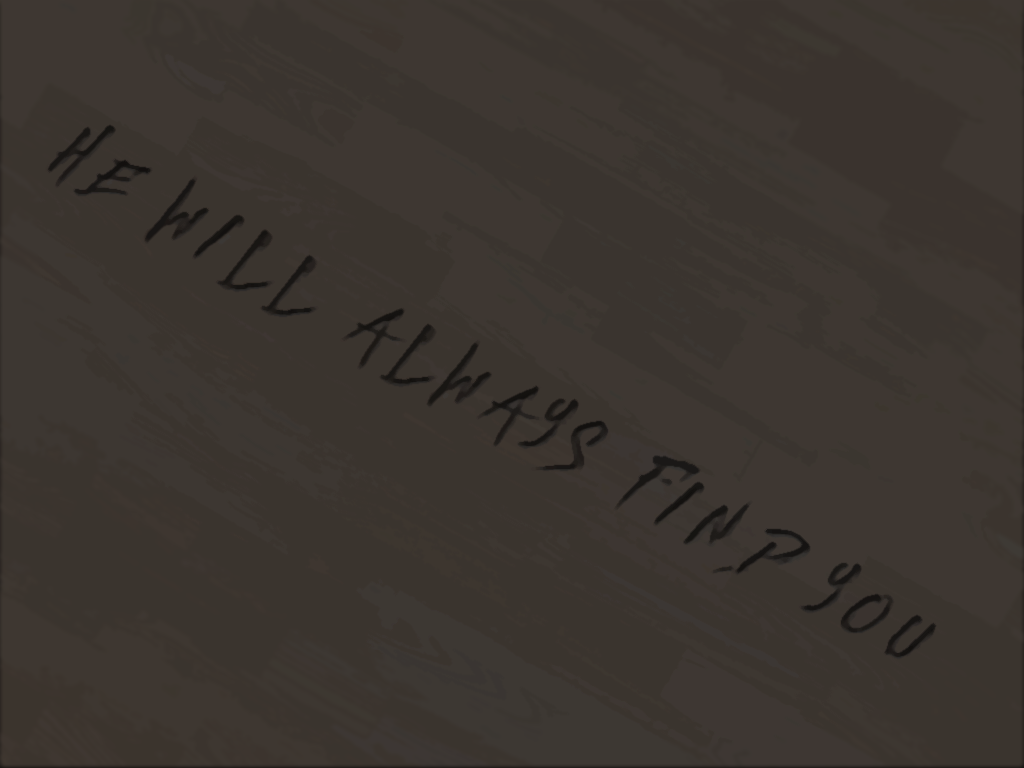 HE WILL ALWAYS FIND YOU